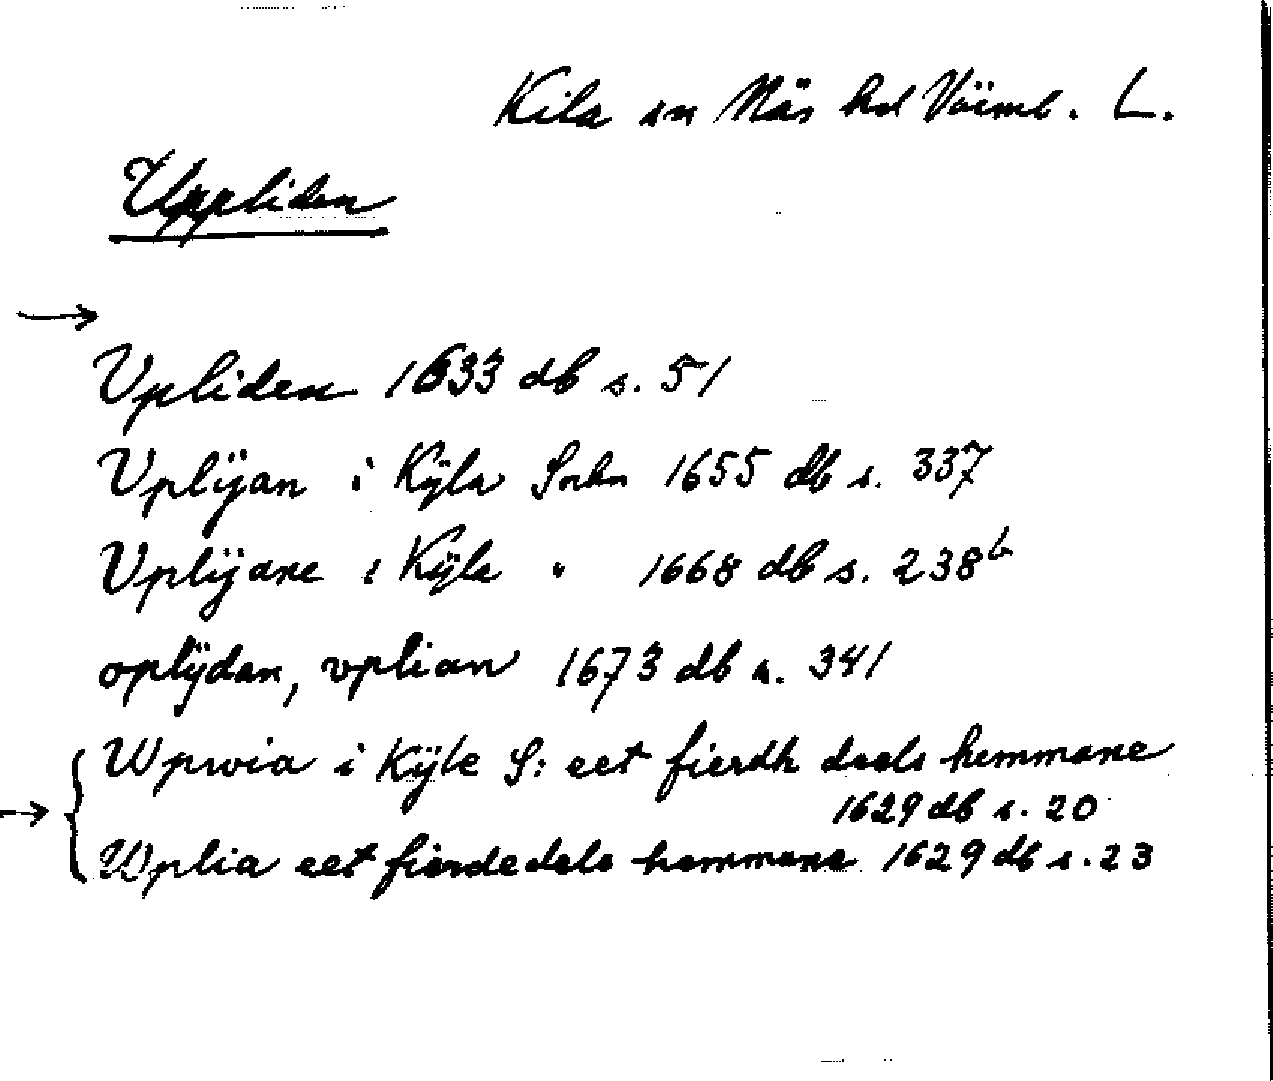 Kila sn Näs hd Värml. L.
Uppliden
Vpliden 1633 db s. 51
Vplÿan i Kÿla Sokn 1655 db s. 337
Vplÿane i Kÿla " 1668 db s. 238b
oplÿdan, vplian 1673 db s. 341
Wpwia i Kÿle S: eet fierdh deels hemmane
1629 db s. 20
Wplia eet fierdedels hemmane 1629 db s. 23